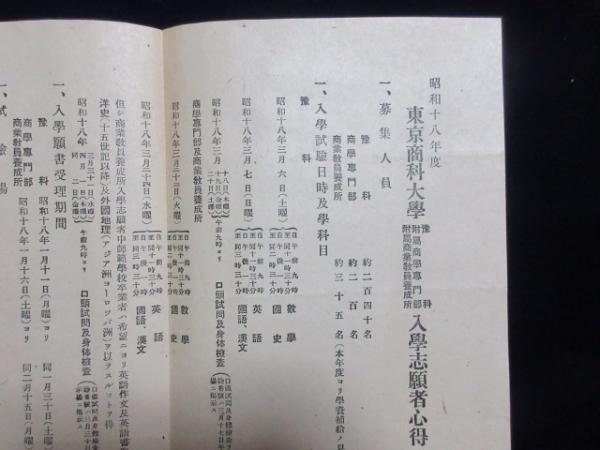 昭和十八年度
東京商科大學 豫科 附屬商學專門部 附屬商業敎員養成所 入學志願者心得
一、募集人員
豫科 約二百四十名
商學專門部 約二百名
商業敎員養成所 約三十五名(本年度ヨリ學費補給ノ
一、入學試驗日時及學科目
豫科
昭和十八年三月六日(土曜) 數學 國史
昭和十八年三月七日(日曜) 英語 國語、漢文
昭和十八年三月 十八日(木曜) 十九日(金曜) 二十日(土曜) 午前九時ヨリ 口頭試問及身体檢査
商學專門部及商業敎員養成所
昭和十八年三月二十三日(火曜) 數學 國史
昭和十八年三月二十四日(水曜) 英語 國語、漢文
但シ商業敎員養成所入學志願者中師範學校卒業者ハ希望ニヨリ英語作文及英語書
洋史(十五世紀以降)及外國地理(アジア洲ヨーロッパ洲)ヲ以テスルコトヲ得
昭和十八年 三月三十一日(水曜) 四月一日(木曜) 同二日(金曜) 午前九時ヨリ 口頭試問及身体檢査
一、入學願書受理期間
豫科 昭和十八年一月十一日(月曜)ヨリ 同一月三十日(土曜)
商學專門部 商業敎員養成所 昭和十八年一月十六日(土曜)ヨリ 同二月十五日(月曜)
一、試驗場